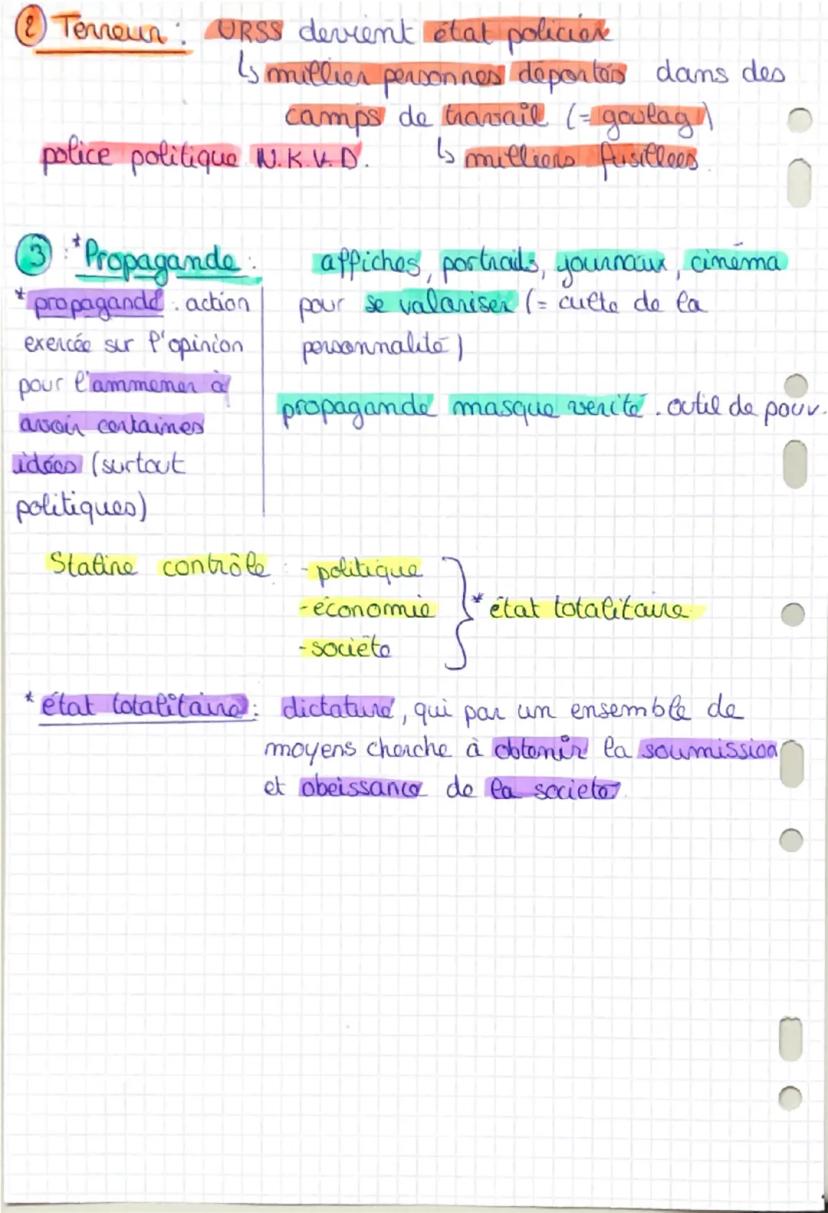 ② Terreur : URSS devient état policier
↳ millier personnes déportés dans des
camps de travail (= goulag)
police politique N.K.V.D. ↳ milliers fusillées
③ : *Propagande : affiches, portraits, journaux, cinéma
pour se valoriser (= culte de la
personnalité)
propagande masque verité . outil de pouv.
* propagande : action
exercée sur l'opinion
pour l'ammener à
avoir certaines
idées (surtout
politiques)
Staline contrôle : - politique
- économie * état totalitaire
- société
* état totalitaire : dictature, qui par un ensemble de
moyens cherche à obtenir la soumission
et obeissance de la societé